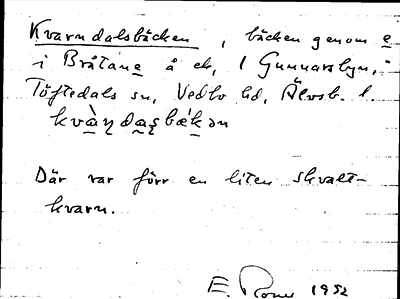 Kvarndalsbäcken, bäcken genom e
i Bråtane å ek, i Gunnarsbyn,
Töftedals sn, Vedbo hd, Älvsb. l.
kvàɳdasbækən
Där var förr en liten skvalt-
kvarn.
E. 1952